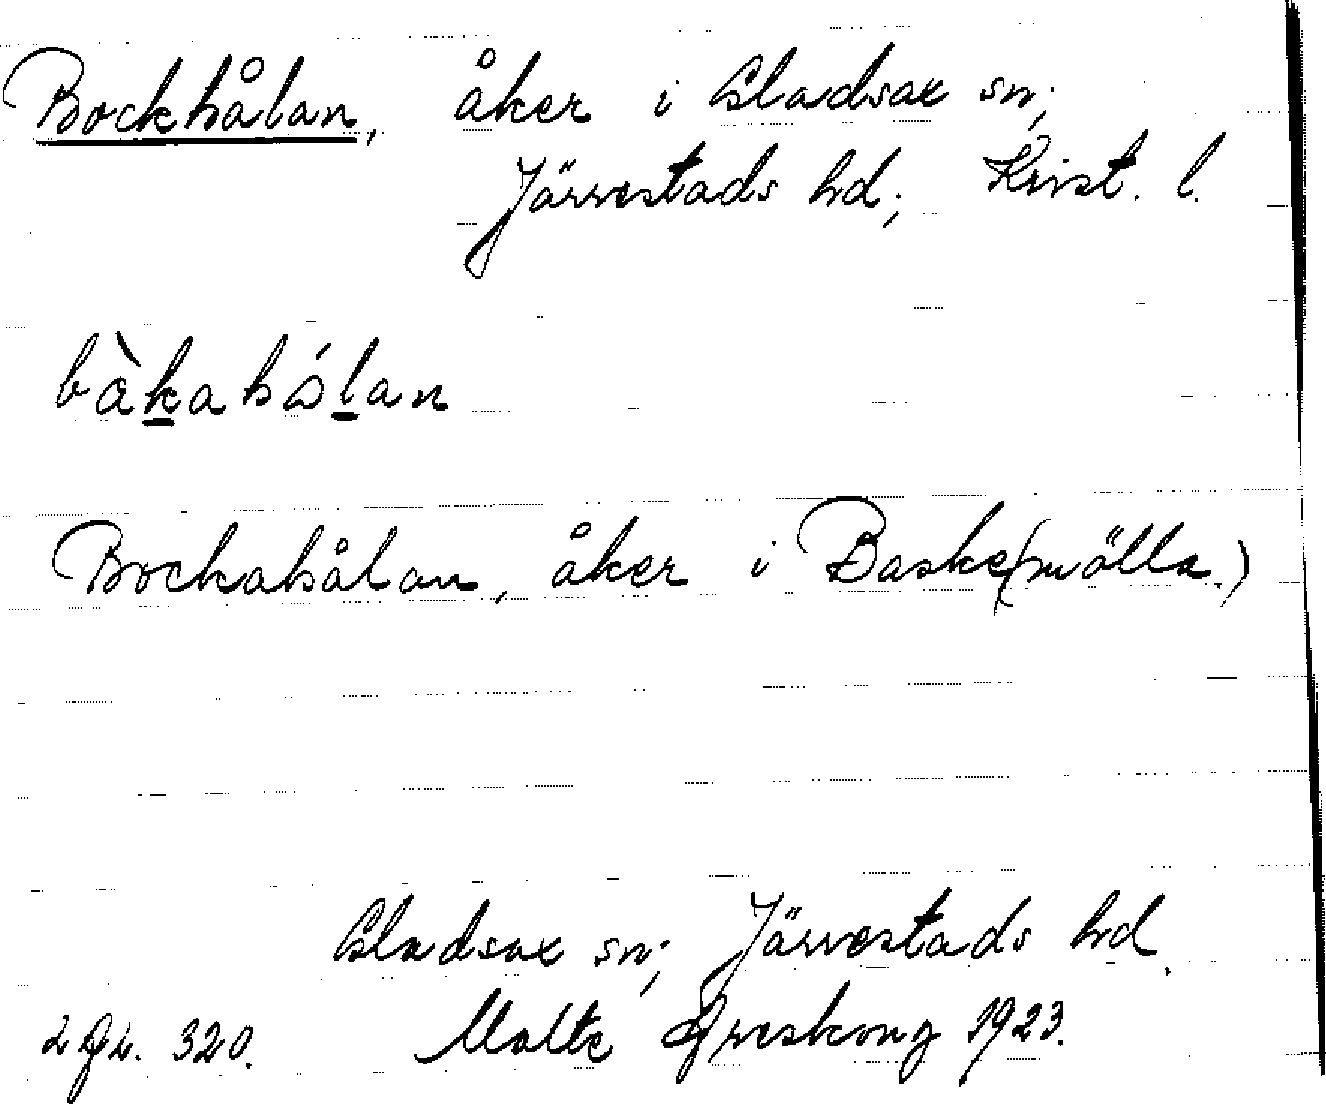 Bockhålan, åker i Gladsax sn;
Järrestads hd; Krist. l.
bàkahålan
Bockahålan, åker i Baske(mölla.)
Gladsax sn; Järrestads hd.
320. Malte Areskoug 1923.